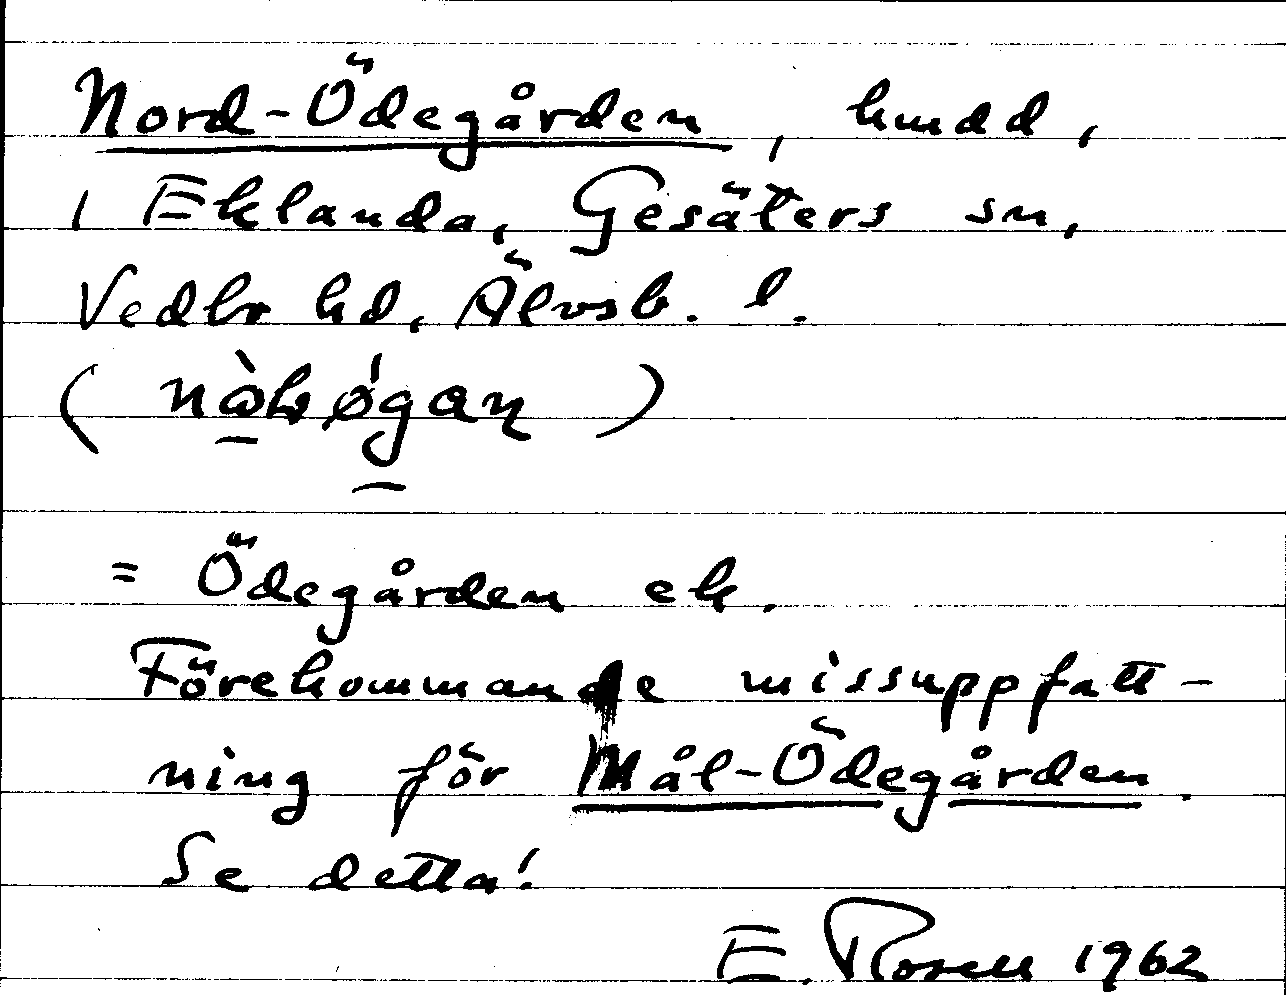 Nord-Ödegården, hmdd,
i Eklanda, Gesäters sn,
Vedbo hd, Älvsb. l.
= Ödegården ek.
Förekommande missuppfatt-
ning för Mål-Ödegården.
Se detta!
E. Rosell 1962